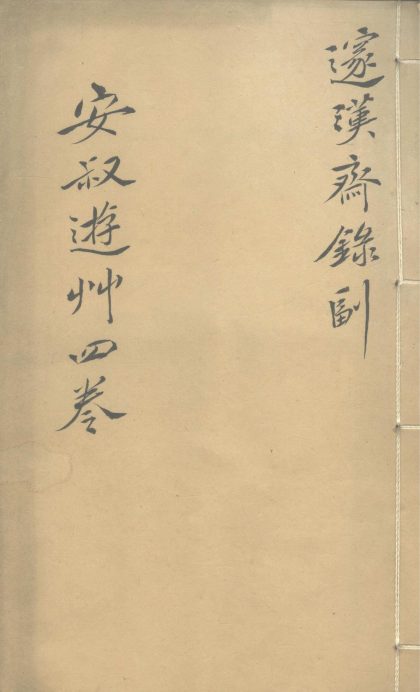 邃漢齋錄副
安叔遊艸四卷